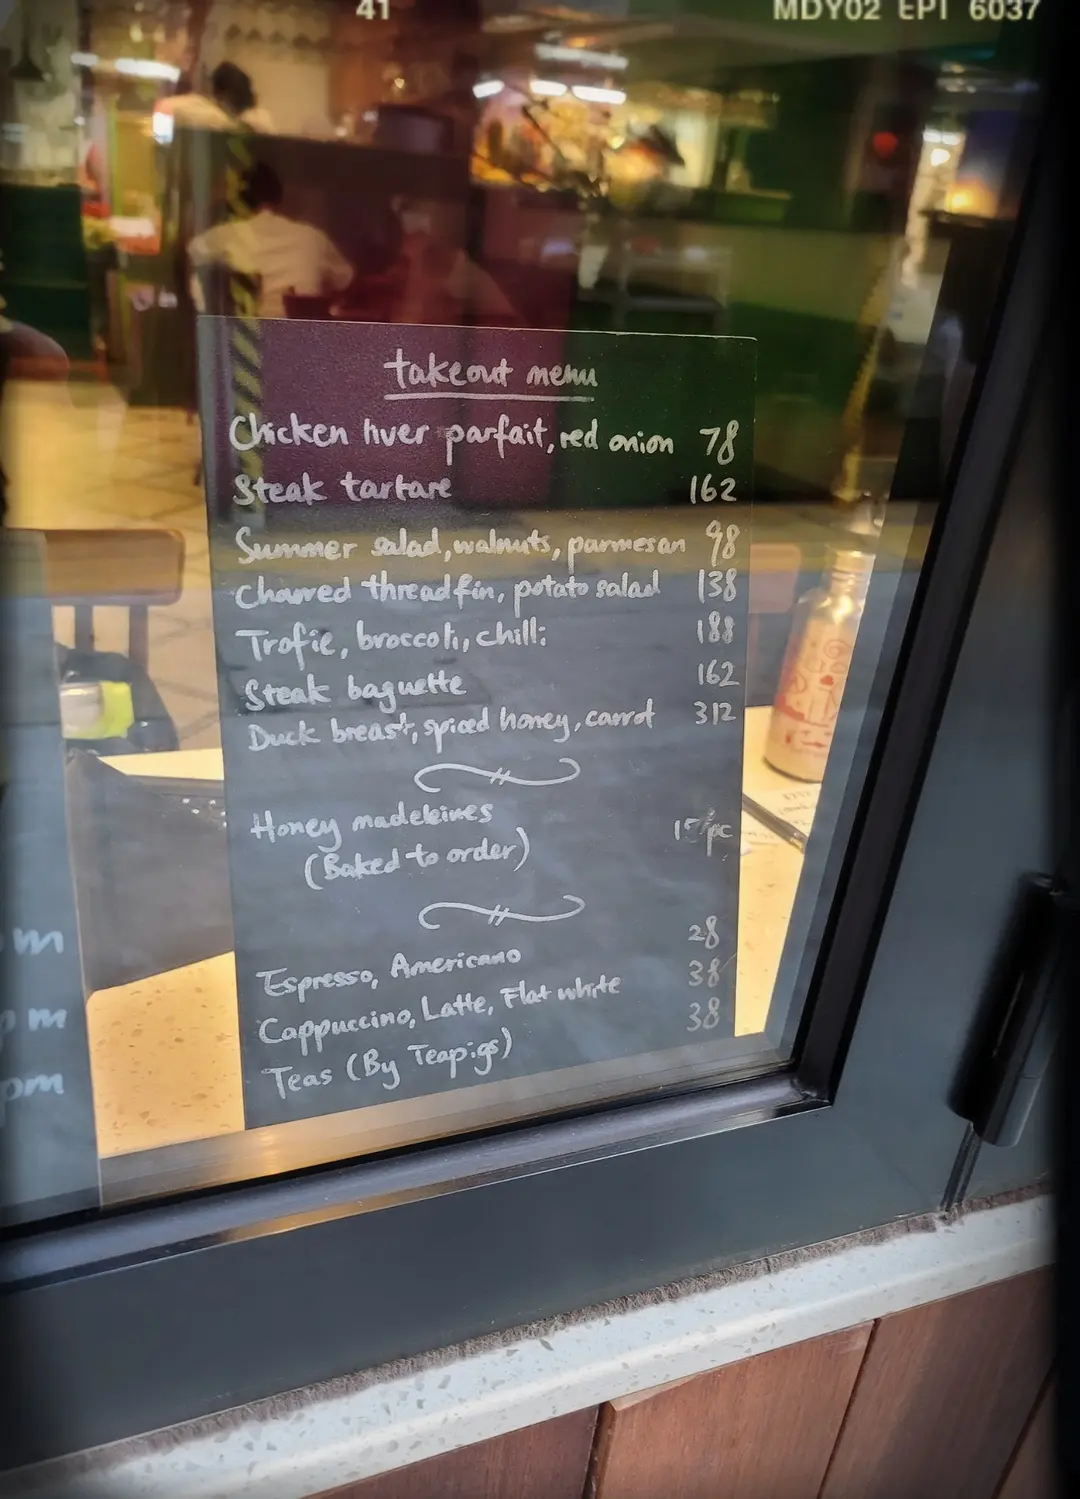 41 MDY02 EPI 6037
takeout menu
Chicken liver parfait, red onion 78
Steak tartare 162
Summer salad, walnuts, parmesan 98
Charred threadfin, potato salad 138
Trofie, broccoli, chilli 188
Steak baguette 162
Duck breast, spiced honey, carrot 312
Honey madeleines /pc
(Baked to order)
Espresso, Americano 28
Cappuccino, Latte, Flat white 38
Teas (By Teapigs) 38
m
pm
pm